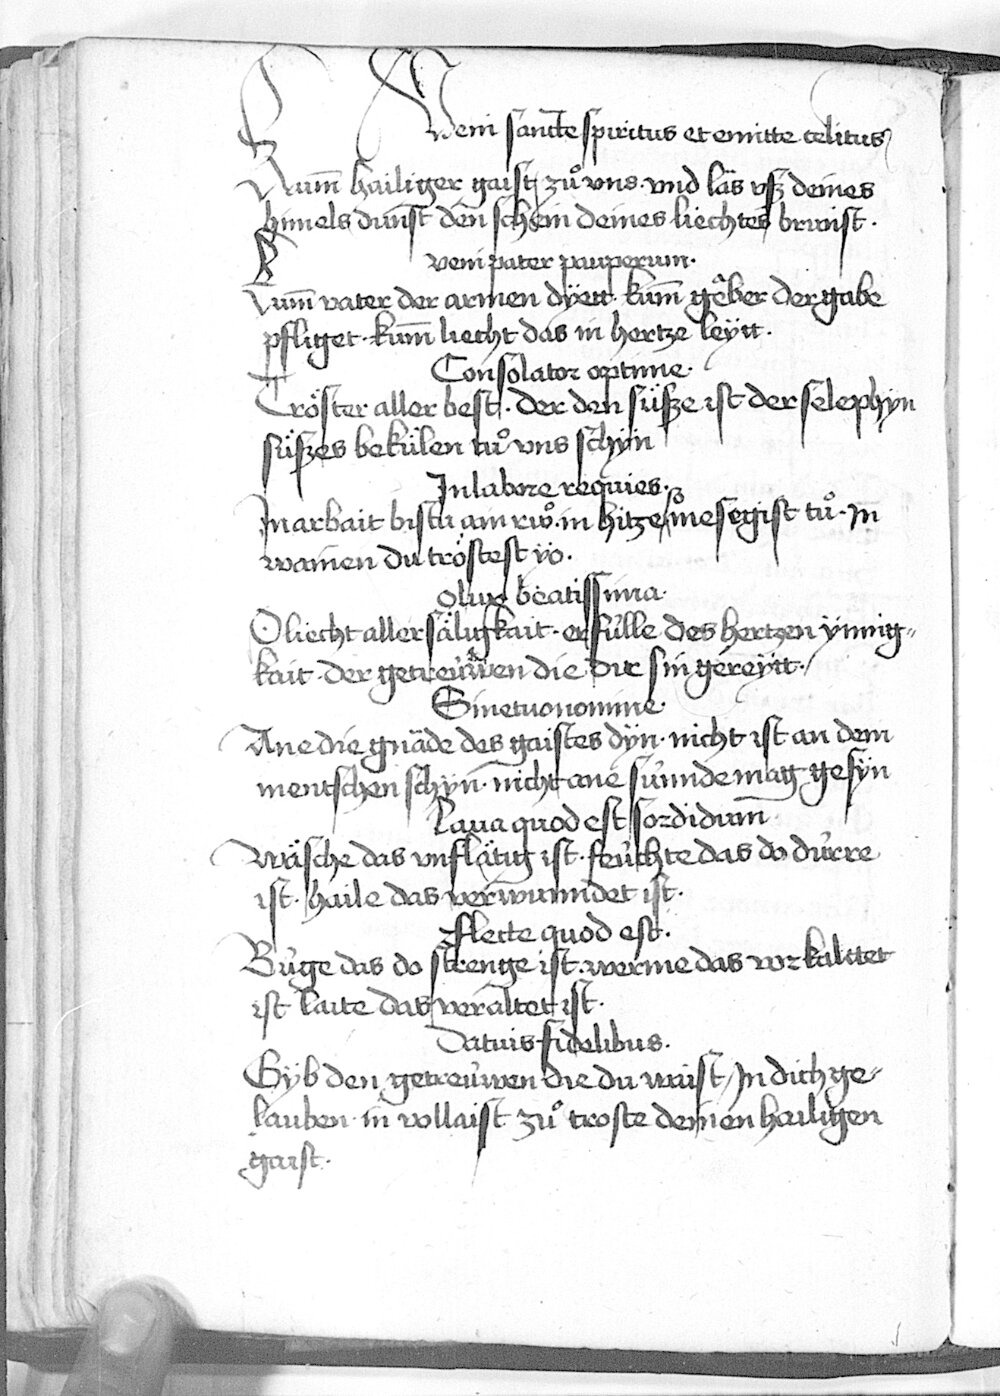 Veni sancte spiritus et emitte celitus
Kum̄ hailiger gaist zů vns. vnd läs vsz deines
himels dunst den schein deines liechtes brwist.
veni pater pauperum.
Kum̄ vater der armen dÿett. kum̄ geͤber der gabe
pfliget. kum̄ liecht das in hertze leÿtt.
Consolator optime.
Tröster aller best. der den süsze ist der sele phÿn
süszes bekülen tuͦ vns schÿn
In labore requies.
In arbait bistu ain rwͦ. in hitze sine segist tuͦ. In
wainen du tröstest ÿo.
O lux beatissima.
O liecht aller säligkait. erfülle des hertzen ÿnnig-
kait. der getreüwen die dir sin gereÿtt.
Sine tuo nomine.
Ane die gnäde des gaistes dÿn. nicht ist an dem
mentschen schÿn. nicht ane sünnde mag gesÿn
Laua quod est sordidum̄
Wäsche das vnflätig ist. feüchte das do dürre
ist. haile das verwunndet ist.
Flecte quod est.
Büge das do strenge ist. werme das vorkalttet
ist laite das veraltet ist.
Da tuis fidelibus.
Gÿb den getreüwen die du waist / In dich ge-
lauben. in vollaist zů troste deinen hailigen
gaist.